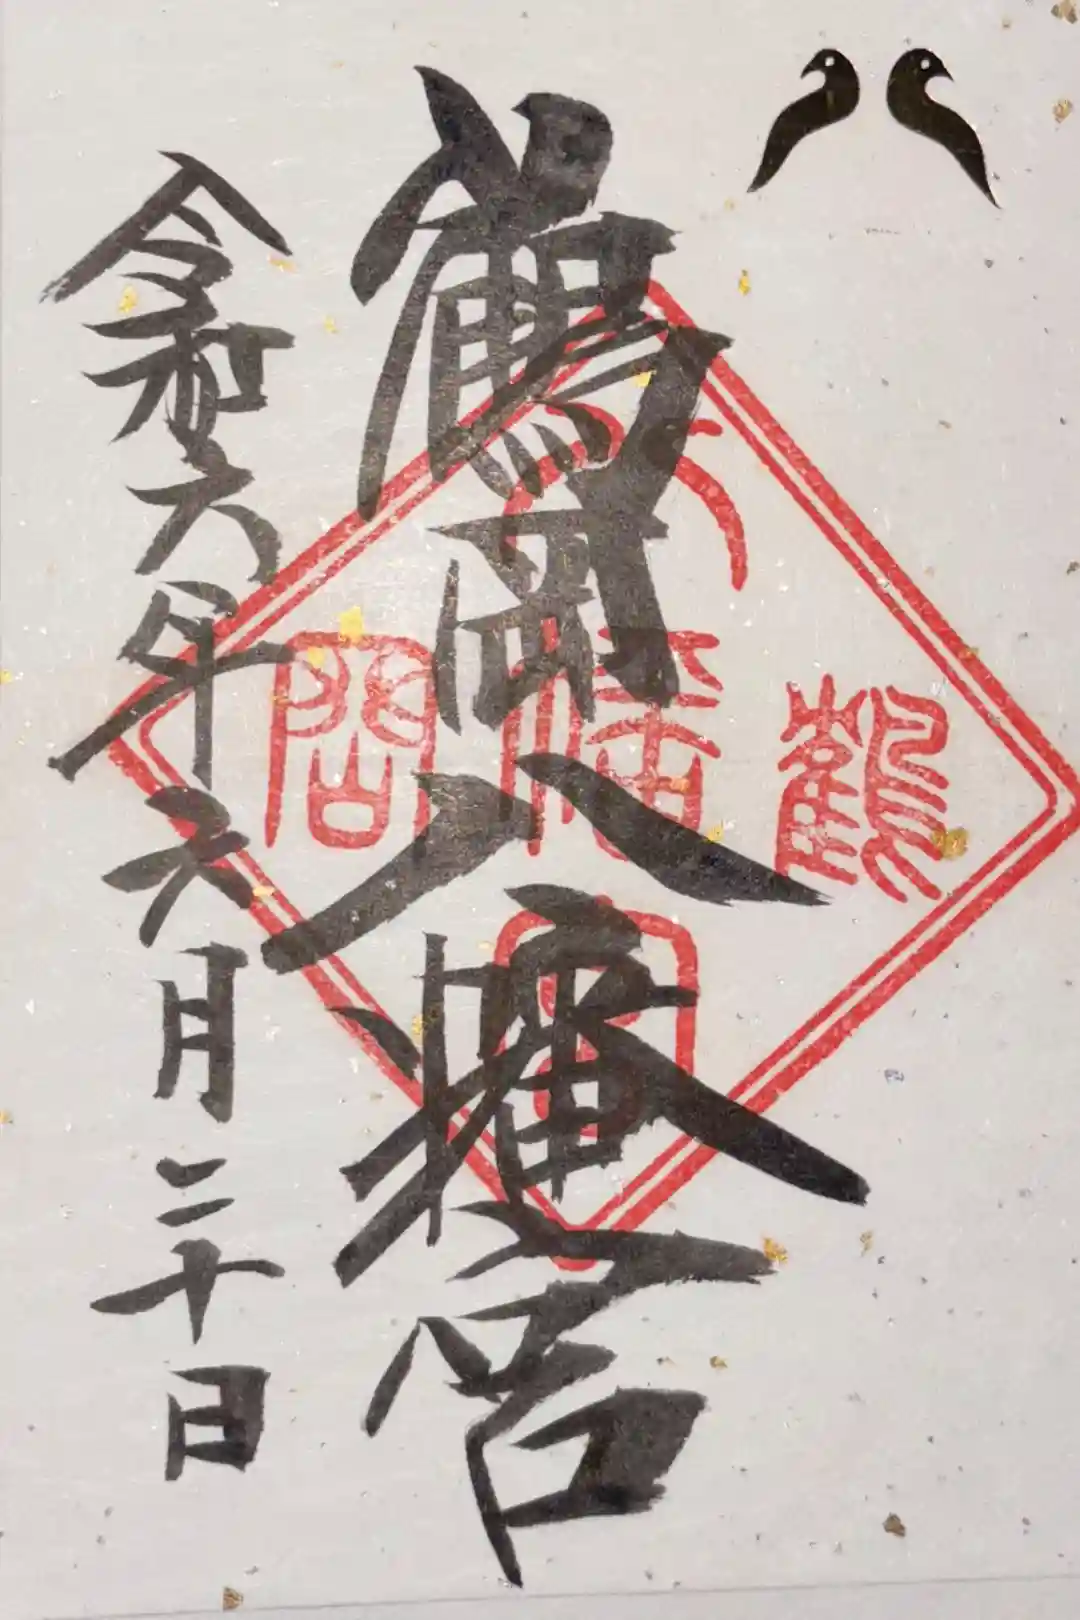 鶴岡八幡宮
令和六年六月二十日
八
幡
宮
鶴
岡